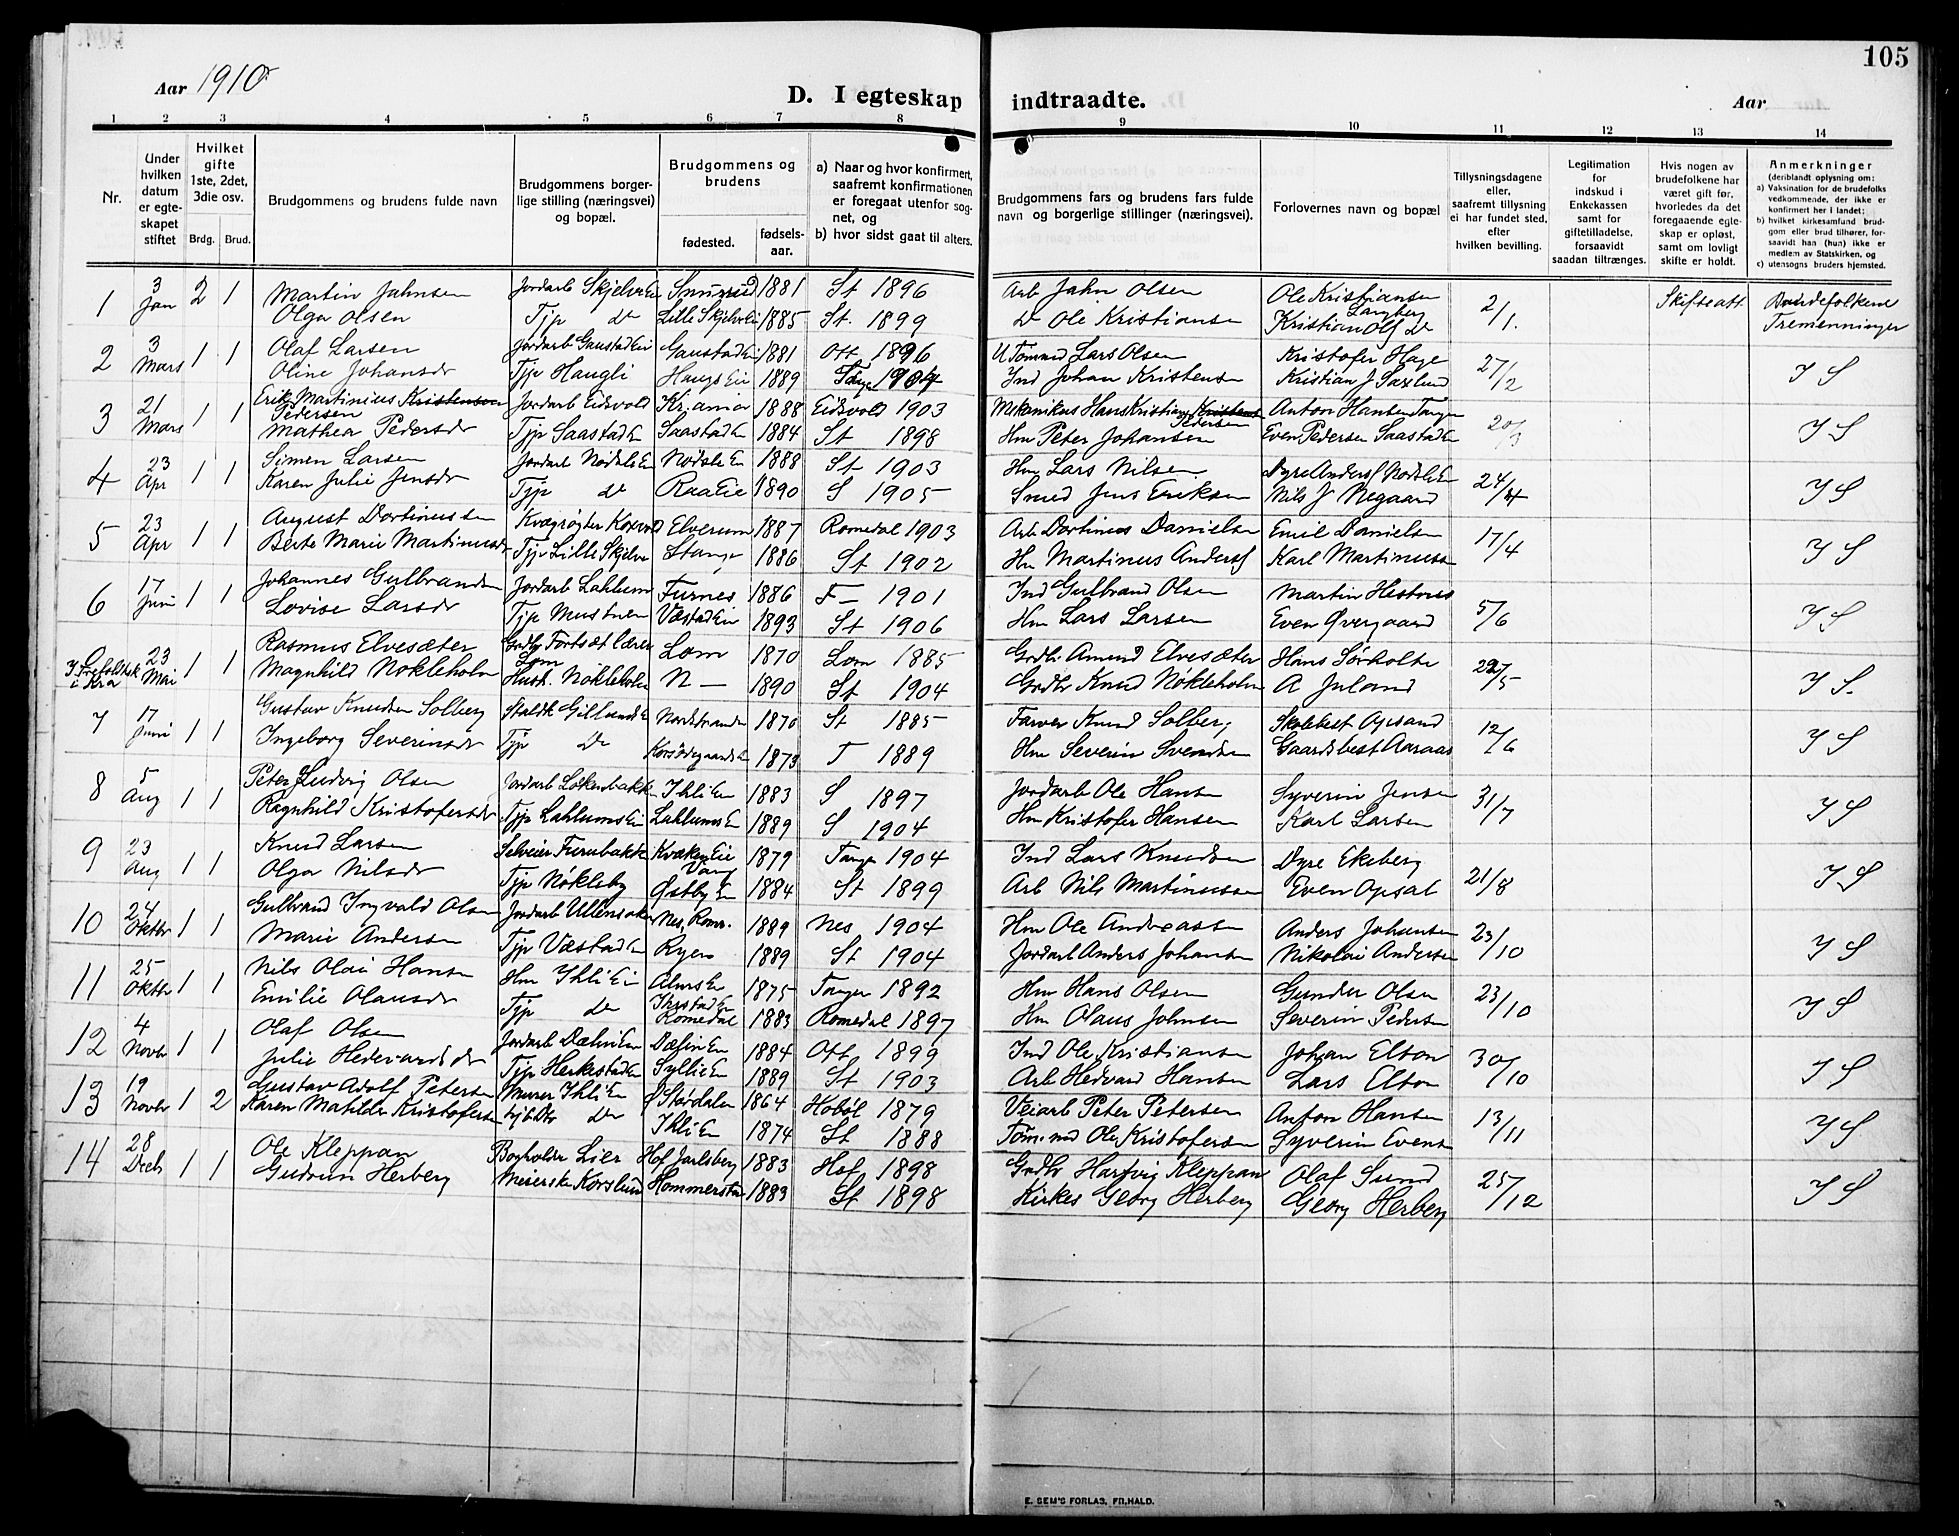 105
Aar 1910
D. I egteskap indtraadte.
Aar
1 2 3 4 5 6 7 8 9 10 11 12 13 14
Nr.
Under hvilken datum er egteskapet stiftet
Hvilket gifte 1ste, 2det, 3die osv.
Brdg. Brud.
Brudgommens og brudens fulde navn
Brudgommens borgerlige stilling (næringsvei) og bopæl.
Brudgommens og brudens
fødested. fødselsaar.
a) Naar og hvor konfirmert, saafremt konfirmationen er foregaat utenfor sognet, og
b) hvor sidst gaat til alters.
Brudgommens fars og brudens fars fulde navn og borgerlige stillinger (næringsvei).
Forlovernes navn og bopæl
Tillysningsdagene eller, saafremt tillysning ei har fundet sted, efter hvilken bevilling.
Legitimation for indskud i Enkekassen samt for giftetilladelse, forsaavidt saadan tiltrænges.
Hvis nogen av brudefolkene har været gift før, hvorledes da det foregaaende egteskap er opløst, samt om lovligt skifte er holdt.
Anmerkninger (deriblandt oplysning om:
a) Vaksination for de brudefolks vedkommende, der ikke er konfirmert her i landet;
b) hvilket kirkesamfund brudgom eller brud tilhører, forsaavidt han (hun) ikke er medlem av Statskirken, og
c) utensogns bruders hjemsted.
1 3 Jan 2 1 Martin Jahnsen Jordarb Skjelve Ei 1881 St 1896 Arb Jahn Olsen Ole Kristiansen Langberg 2/1. Skifteatt Brudefolkene
Olga Olsen Tjp do Lille Skjelve Ei 1885 St. 1899 Do Ole Kristiansen Kristian Ols do Tremenninger
2 3 Mars 1 1 Olaf Larsen Jordarb Gaustad Ei Gaustad Ei 1881 Ott 1896 Lars Olsen Kristofer Hage 27/2 I S
Oline Johansdr Tjp Haugli Haugs Eie 1889 Tange 1904 Ind Johan Kristensen Kristian J Saxlund
3 21 Mars 1 1 Erik Martinius Kristensen Pedersen Jordarb Eidsvold Kr.ania 1888 Eidsvold 1903 Mekanikus Hans Kristian Kristensen Pedersen Anton Hansen Tangen 20/3 I S
Mathea Pedersdr Tjp Saastad E Saastad E 1884 St 1898 Hm Peter Johansen Even Pedersen Saastad E
4 23 Apr 1 1 Simen Larsen Jordarb Nødsle Ei Nødsle Ei 1888 St 1903 Hm Lars Nilsen Dyre Anders Nødsle Ei 24/4 I S
Karen Julie Jensdr Tjp do Raa Eie 1890 S 1905 Smed Jens Eriksen Nils J Negaard
5 23 Apr 1 1 August Dortinussen Kvægrøgter Elverum 1887 Romedal 1903 Arb Dortinus Danielsen Emil Danielsen 17/4 I S
Berte Marie Martinusdr Tjp Lille Skjelve Stange 1886 St 1902 Hm Martinus Anders Karl Martinussen
6 17 Juni 1 1 Johannes Gulbrandsen Jordarb Lahlum Furnes 1886 F — 1901 Ind Gulbrand Olsen Martin Hestnes 5/6 I S
Lovise Larsdr Tjp Mustuen Væstad Ei 1893 St 1906 Hm Lars Larsen Even Øvergaard
23 Mai 1 1 Rasmus Elvesæter Lom Lom 1870 Lom 1885 Grdbr Amund Elvesæter Hans Sørholte 22/5 I S.
Magnhild Nøkleholm Hush. Nøkleholm N — 1890 St 1904 Grdbr Knud Nøkleholm A Juland
7 17 Juni 1 1 Gustav Knudsen Solberg Staldk Gillund E Nordstranden 1870 St 1885 Farver Knud Solberg Skolebest Opsand 12/6 I S
Ingeborg Severinsdr Tjp do Korsødegaards E 1873 T 1889 Hm Severin Svendsen Gaardsbest Aaraas
8 5 Aug 1 1 Peter Ludvig Olsen Jordarb Løkenbakken Ihli Ei 1883 S 1897 Jordarb Ole Hansen Syverin Jensen 31/7 I S
Ragnhild Kristofersdr Tjp Lahlums Ei Lahlums E 1889 S 1904 Hm Kristofer Hansen Karl Larsen
9 23 Aug 1 1 Knud Larsen Selveier Furubakke Kvæken Eie Vang 1879 Tange 1904 Ind Lars Knudsen Dyre Ekeberg 21/8 I S
Olga Nilsdr Tjp Nøkleby Østby Ei 1884 St 1899 Arb Nils Martinussen Even Opsal
10 24 Oktbr 1 1 Gulbrand Ingvald Olsen Jordarb Ullensaker Nes, Rom. 1889 Nes 1904 Hm Ole Andreassen Anders Johansen 23/10 I S
Marie Andersen Tjp Væstad Ei Ryen 1889 St 1904 Jordarb Anders Johansen Nikolai Andersen
11 25 Oktbr 1 1 Nils Olai Hansen Hm Ihli Ei Alms Ei 1875 Tange 1892 Hm Hans Olsen Gunder Olsen 23/10 I S
Emilie Olausdr Tjp do Romedal 1883 Romedal 1897 Hm Olaus Johnsen Severin Pedersen
12 4 Novbr 1 1 Olaf Olsen Jordarb Dælin Ei Dælin Ei 1884 Ott 1899 Ind Ole Kristiansen Johan Elton 30/10 I S
Julie Hedevardsdr Tjp Herkestad Ei Syllie Ei 1889 St 1903 Arb Hedvard Hansen Lars Elton
13 19 Novbr 1 2 Gustav Adolf Petersen Murer Ihli Ei Ø Størdalen 1864 Hobøl 1879 Veiarb Peter Petersen Anton Hansen 13/11 I S
Karen Matilde Kristofersen do Ihli Ei 1874 St 1888 Tøm.md Ole Kristofersen Syverin Evensen
14 28 Decb 1 1 Ole Kleppan Bogholder Lier Hof Jarlsberg 1883 Hof 1898 Grdbr Hartvig Kleppan Olaf Sund 25/12 I S
Gudrun Herberg Meierske Korslund Hommerstad 1883 St 1898 Kirkes Georg Herberg Georg Herberg
E. SEM'S FORLAG, FR.HALD.